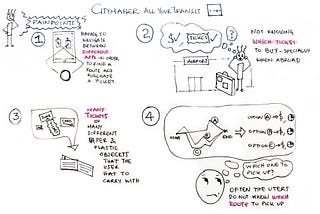 CITYMAPER ALL YOUR TRANSIT
PAINPOINTS
1
HAVING TO
NAVIGATE
BETWEEN
DIFFERENT
APPS IN ORDER
TO FIND A
ROUTE AND
PURCHASE
A TICKET.
2
TICKET
AIRPORT
?
NOT KNOWING
WHICH TICKET
TO BUY - SPECIALLY
WHEN ABROAD
3
MANY
TICKETS
OF MANY
DIFFERENT
PAPER &
PLASTIC
OBJECTS
THAT THE
USER
HAT TO
CARRY WITH
4
START
END
OPTION A
OPTION B
OPTION C
WHICH ONE TO
PICK UP?
OFTEN THE USERS
DO NOT KNOW WHICH
ROUTE TO PICK UP.